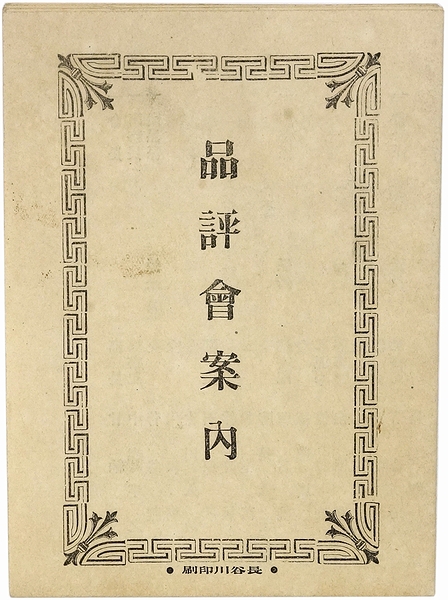 品評會案内
●長谷川印刷●